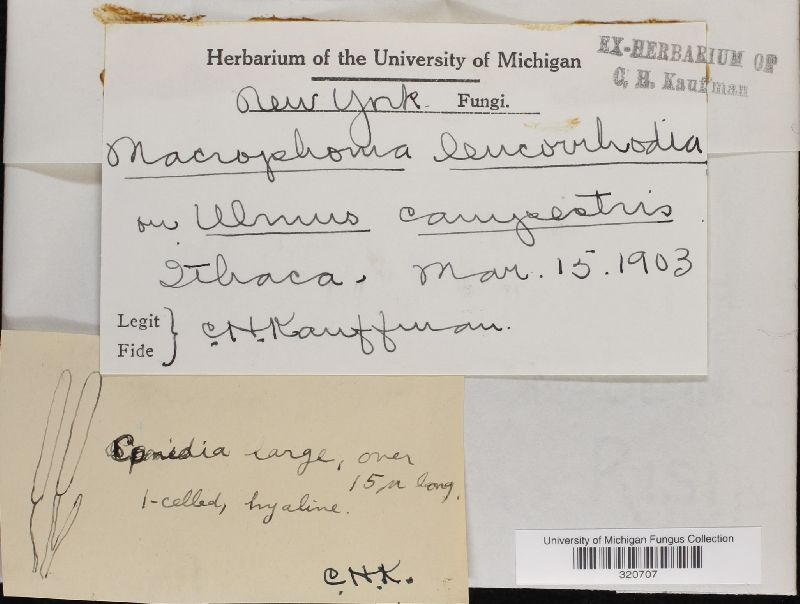 Herbarium of the University of Michigan
EX-HERBARIUM OF
C. H. Kauffman
New York. Fungi.
Macrophoma leucorrhodia
on Ulmus campestris
Ithaca, Mar. 15. 1903
Legit
Fide
C.H.Kauffman.
Conidia large, over
15 µ long,
1-celled, hyaline.
C.H.K.
University of Michigan Fungus Collection
320707